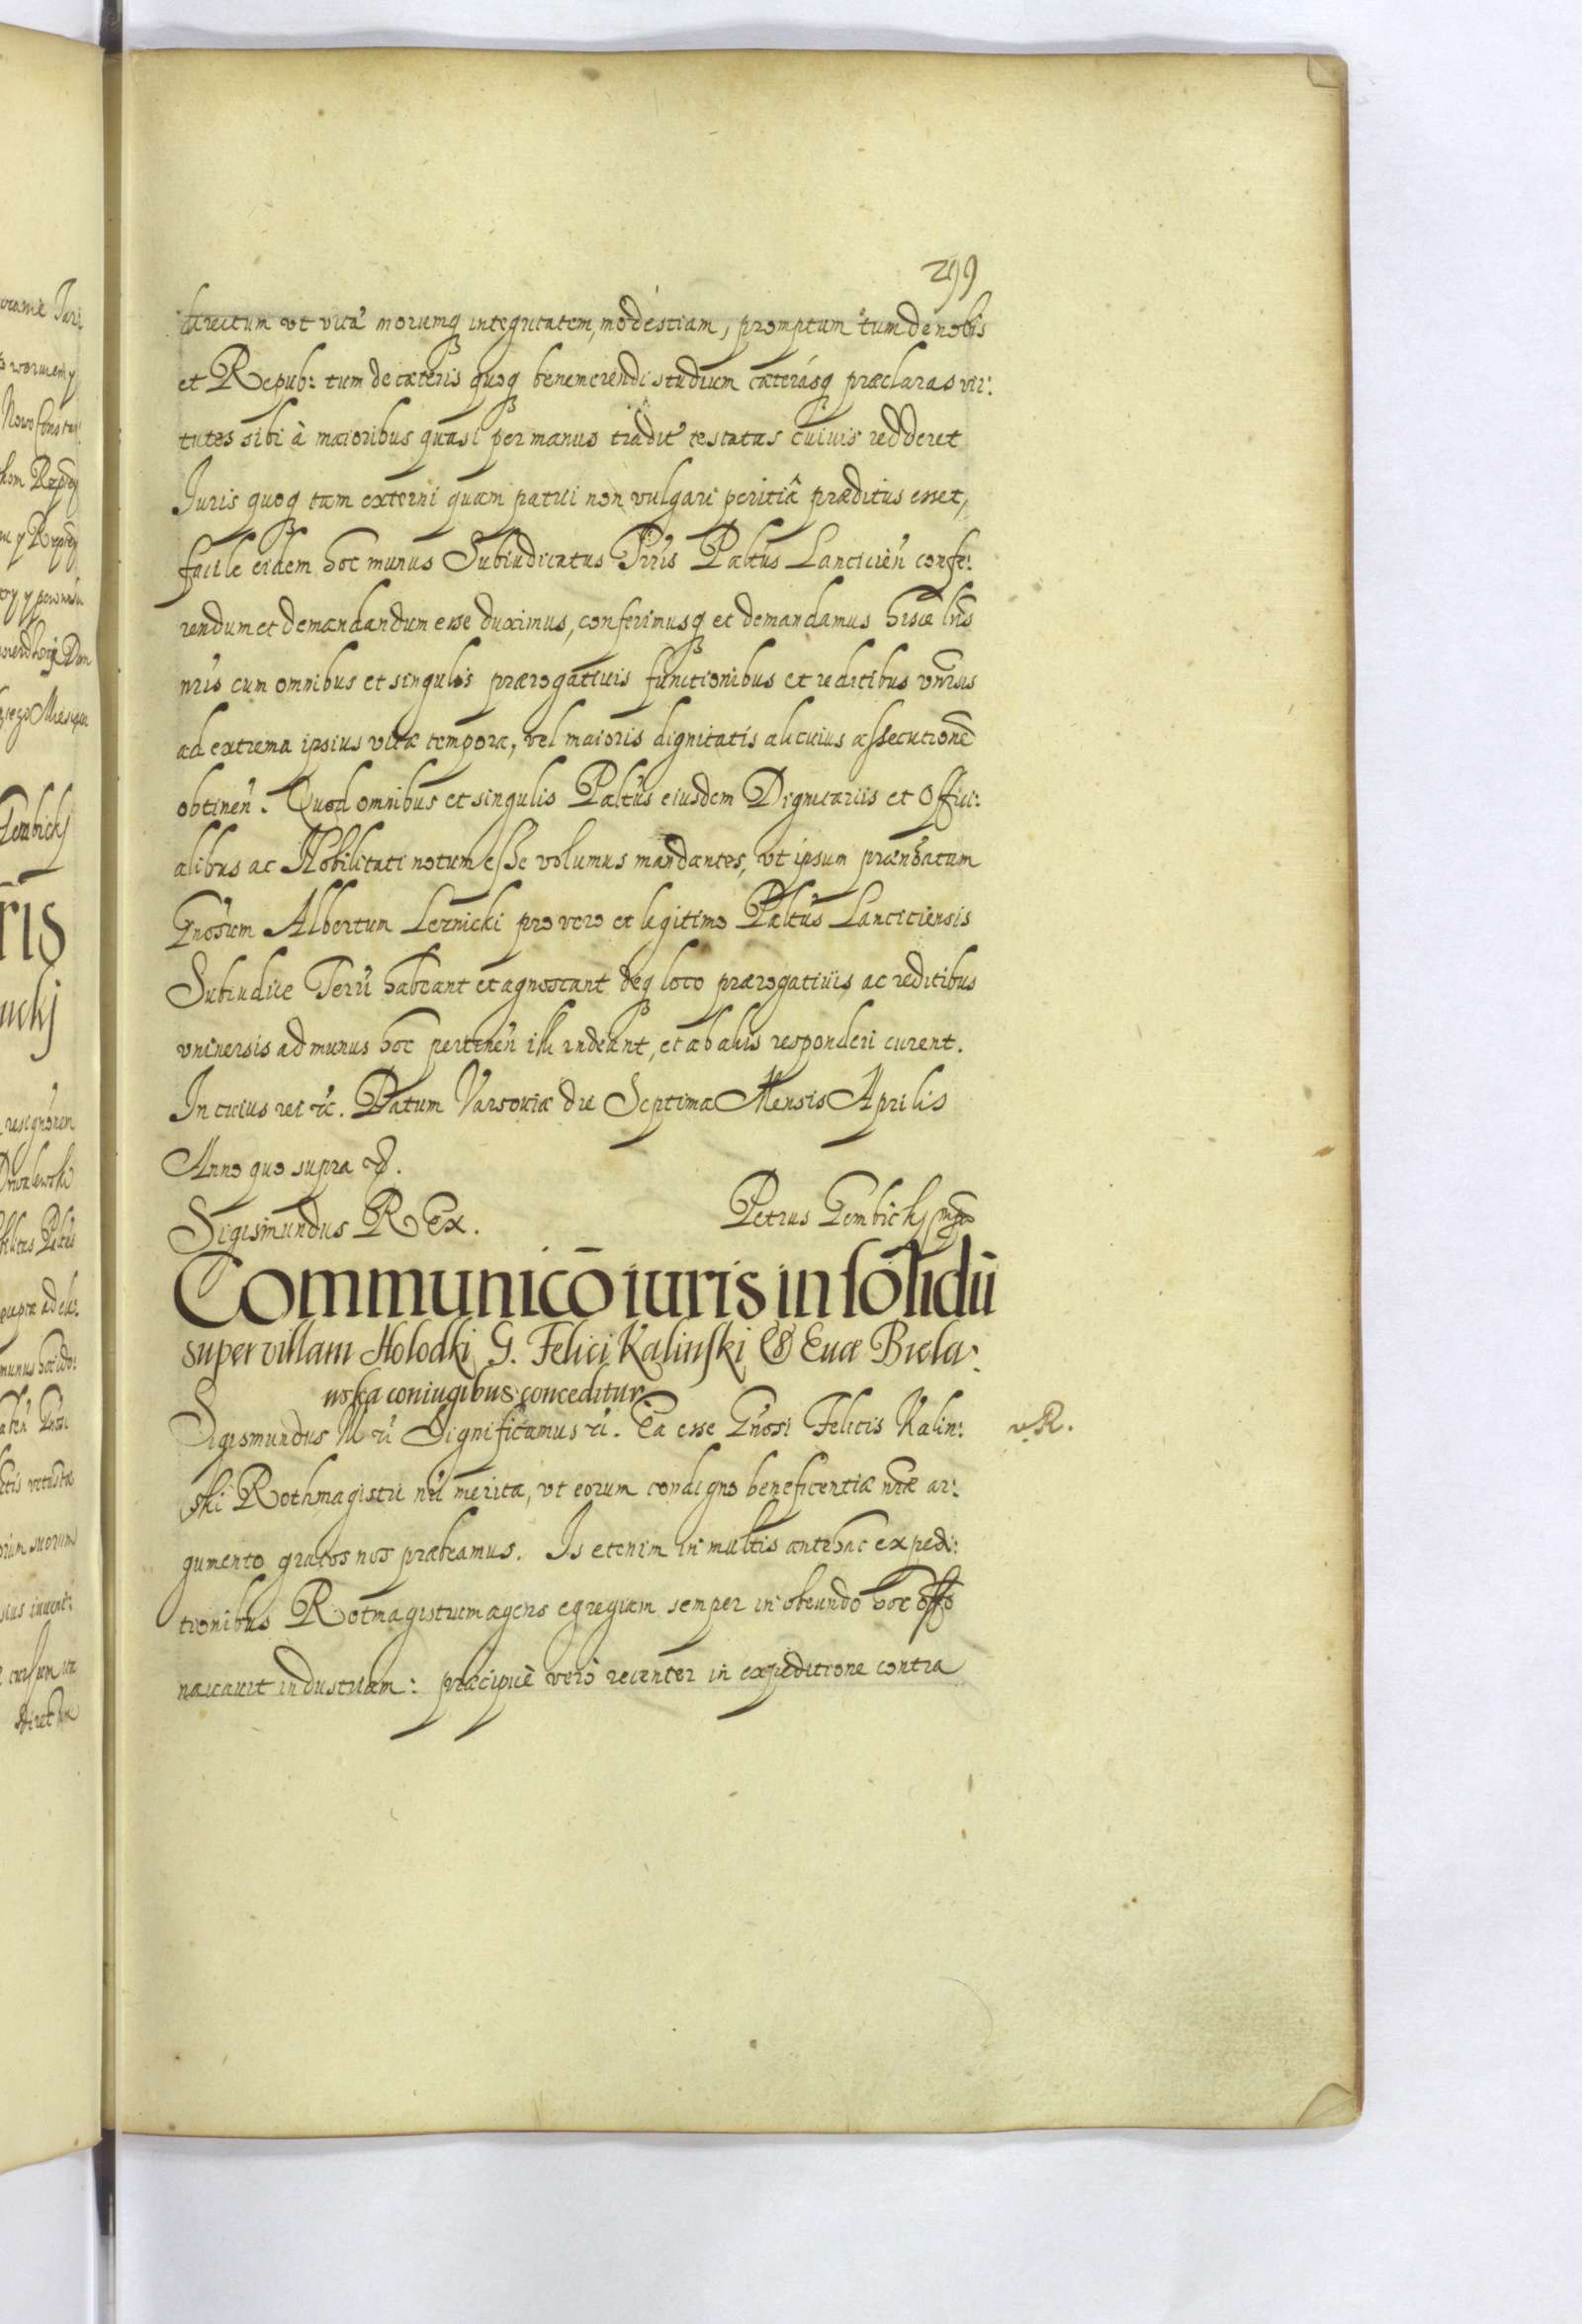 299
directum vt vitæ morumq integritatem, modestiam, promptum tum de nobis
et Repub: tum de cæteris quoq benemerendi studium cæterásq præclaras vir:
tutes sibi à maioribus quasi per manus tradit testatas cuiuis redderet
Iuris quoq tam externi quam patrii non vulgari peritiâ præditus esset,
facile eidem hoc munus Subiudicatus Trris Paltus Lancicien confe:
rendum et demandandum esse duximus, conferimusq et demandamus hisce lris
nris cum omnibus et singulis prærogatiuis functionibus et reditibus vnrsis
ad extrema ipsius vitæ tempora, vel maioris dignitatis alicuius assecutionē
obtinen. Quod omnibus et singulis Paltus eiusdem Dignitariis et Offici:
alibus ac Nobilitati notum esse volumus mandantes, vt ipsum prænoatum
Gnosum Albertum Leznicki pro vero et legitimo Paltus Lanciciensis
Subiudice Terri habeant et agnoscant deq loco prærogatiuis ac reditibus
vniuersis ad munus hoc pertinen illi rndeant, et ab aliis responderi curent.
In cuius rei etc. Datum Varsouiæ die Septima Mensis Aprilis
Anno quo supra
Sigismundus REx. Petrus Gembicki mp
Communicō iuris in solidū
super villam Holodki G. Felici Kalinski & Euæ Biela:
wska coniugibus conceditur
Sigismundus III etc Significamus etc. Ea esse Gnosi Felicis Kalin: R.
ski Rothmagistri nri merita, vt eorum condigno beneficentiæ nræ ar:
gumento gratos nos præbeamus. Is etenim in multis antehac expedi:
tionibus Rotmagistrum agens egregiam semper in obeundo hoc offo
nauauit industriam: præcipuè verò recenter in expeditione contra